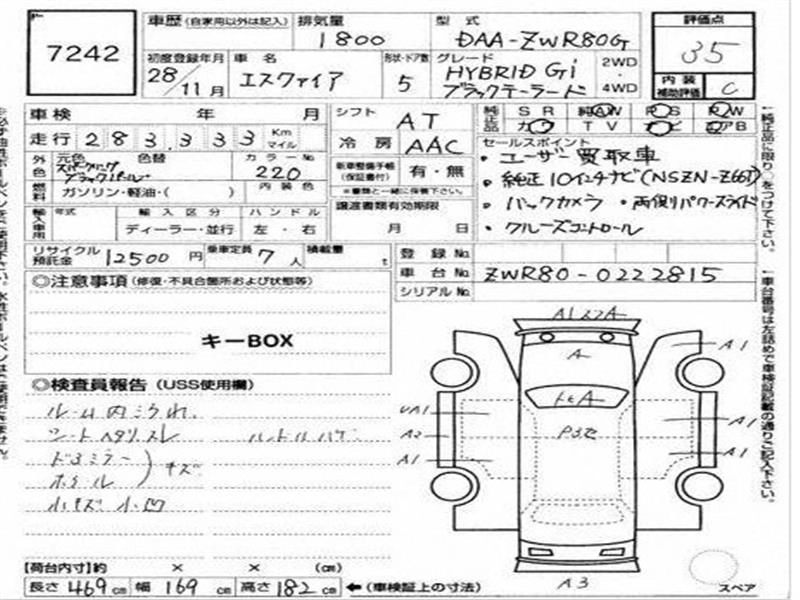 7242
車歴 (自家用以外は記入)
排気量 1800
型式 DAA-ZWR80G
評価点 35
初度登録年月 28年 11月
車名 エスクァイア
形状・ドア数 5
グレード HYBRID Gi ブラックテーラード
2WD ・ 4WD
内装補助評価 C
車検 年 月
シフト AT
純正品 SR 純AW PS PW
カワ TV ナビ エアB
走行 283,333 Km マイル
冷房 AAC
セールスポイント
・ユーザー買取車
・純正10インチナビ(NSZN-Z66T)
・バックカメラ ・両側パワースライド
・クルーズコントロール
外色 元色 色替
ブラックパール
カラーNo 220
新車整備手帳(保証書付) 有・無
※書類と一緒に保管下さい。
燃料 ガソリン・軽油・( )
内装色
譲渡書類有効期限
月 日
輸入車用 年式 輸入区分 ハンドル
ディーラー・並行 左・右
リサイクル預託金 12500円
乗車定員 7人
積載量 t
登録No.
車台No. ZWR80-0222815
シリアルNo.
◎注意事項 (修復・不具合箇所および状態等)
キーBOX
◎検査員報告 (USS使用欄)
ルーム内こうれ
シートヘタリスレ ハンドルハゲ
ドアミラー
ホイル ) キズ
小キズ 小凹
A1 A
A
A
A1
UA1
A2
A1
A1
A1
A3
スペア
【荷台内寸】約 × × (cm)
長さ 469cm 幅 169cm 高さ 182cm ←(車検証上の寸法)
↑純正品に限り○をつけて下さい。
↑車台番号は左詰めで車検証記載の通りご記入下さい。